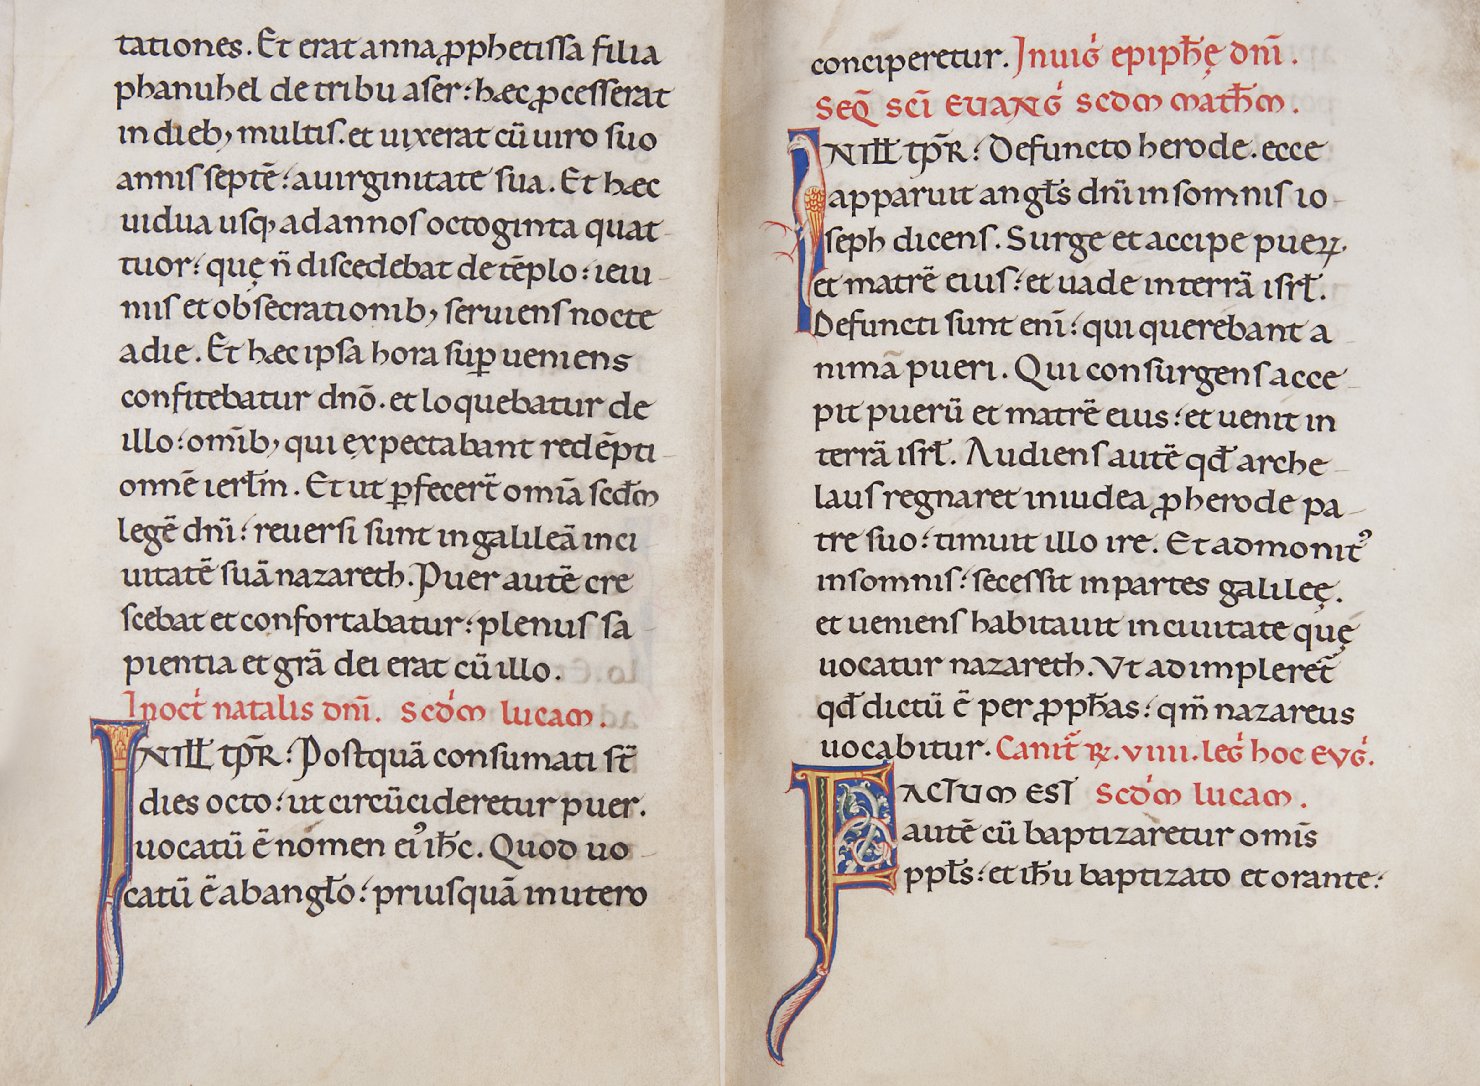 tationes. Et erat anna ꝓphetissa filia
phanuhel de tribu aser: hæc ꝓcesserat
in dieb; multis. et uixerat cū uiro suo
annis septē: a uirginitate sua. Et hæc
uidua usq; ad annos octoginta quat
tuor: quę n̄ discedebat de tēplo: ieiu
niis et obsecrationib; seruiens nocte
a die. Et hæc ipsa hora suꝑ ueniens
confitebatur dnō. et loquebatur de
illo: omīb; qui expectabant redēpti
onnē ierłm. Et ut ꝑfecer̄t omīa scđm
legē dnī: reuersi sunt in galileā in ci
uitatē suā nazareth. Puer autē cre
scebat et confortabatur: plenus sa
pientia et grā dei erat cū illo.
I noct́ natalis dnī. Scdḿ lucam.
IN ILŁ TP̄R: Postquā consumati st̄
dies octo: ut circūcideretur puer.
uocatū ē nomen ei᾿ ihc̄. Quod uo
catū ē ab angło: priusquā in utero
conciperetur. In uiǵ epiph̄ę dnī.
Seq̄ sci̅ evanǵ scdm math̄m.
IN ILŁ TP̄R: Defuncto herode. ecce
apparuit angłs dnī in somnis io
seph dicens. Surge et accipe pueꝝ.
et matrē eius: et uade in terrā isrł.
Defuncti sunt enī: qui querebant a
nimā pueri. Qui consurgens acce
pit puerū et matrē eius: et uenit in
terrā isrł. Audiens autē qđ arche
laus regnaret in iudea ꝓ herode pa
tre suo: timuit illo ire. Et admonit᾿
in somnis: secessit in partes galileę.
et ueniens habitauit in ciuitate quę
uocatur nazareth. Vt adimpleret̄
qđ dictū ē per ꝓph̄as: qm̄ nazareus
uocabitur. Canit̄ ℞. viiii. leǵ hoc evǵ.
FACTUM EST Scdḿ lucam.
autē cū baptizaretur omīs
ppłs: et ih̄u baptizato et orante: